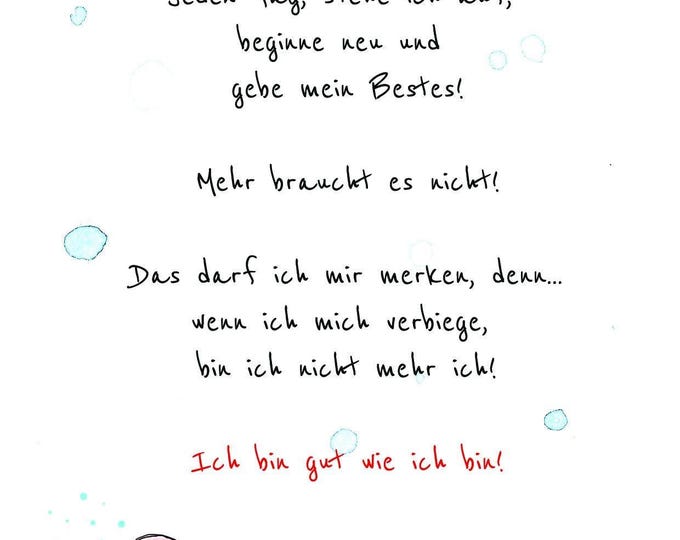 beginne neu und
gebe mein Bestes!
Mehr braucht es nicht!
Das darf ich mir merken, denn...
wenn ich mich verbiege,
bin ich nicht mehr ich!
Ich bin gut wie ich bin!